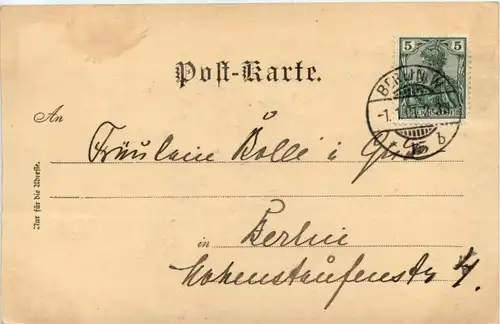 Post-Karte.
5 5
BERLIN W.
-7.
b
An
Fräulein Bolle i
Nur für die Adresse.
in Berlin
Hohenstaufenstr 4.